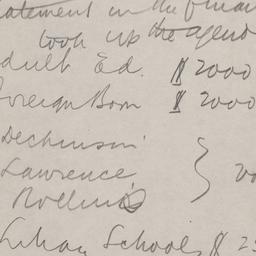 atement in the finan
took up the agend
dult Ed. $ 2000
oreign Born $ 2000
Dechinson
Lawrence
Rollins
Schools $ 25